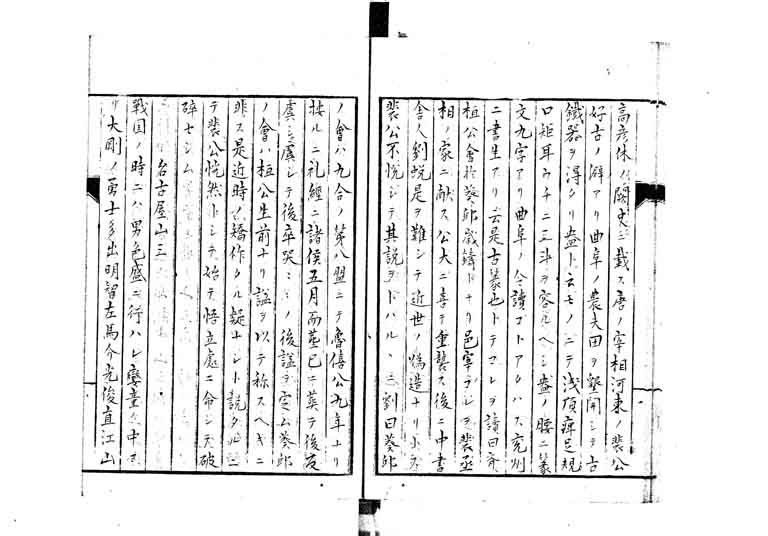 高彦休ノ闕史ニ載ス唐ノ宰相河東ノ裴公
好古ノ癖アリ曲阜ノ農夫田ヲ墾開シテ古
鐵器ヲ得シリ盎ト云モノニテ浅項痺足規
口矩耳ウチニ三斗ヲ容ルヘシ盎ノ腰ニ篆
文九字アリ曲阜ノ令讀コトアタハス兗州
ニ書生アリ云是古篆也トテコレヲ讀曰齊
桓公會於葵邱歳鑄トナリ邑宰コレヲ裴丞
相ノ家ニ献ス公大ニ喜テ重襲ス後ニ中書
舎人劉蛻是ヲ難シテ近世ノ偽造ナリト云
裴公不悦シテ其説ヲトハル丶ニ劉曰葵邱
ノ會ハ九合ノ第八盟ニテ魯僖公九年ナリ
按ルニ礼經ニ諸侯五月而葬已ニ葬テ後反
虞シ既虞シテ後卒哭シ其ノ後諡ヲ定ム葵邱
ノ會ハ桓公生前ナリ諡ヲ以テ称スヘキニ
非ス是近時ノ矯作タル疑ナシト説タルニ
テ裴公恍然トシテ始テ悟立處ニ命シテ破
碎セシム
名古屋山三
戰国ノ時ニハ男色盛ニ行ハレ孌童ノ中ヨ
リ大剛ノ勇士多出明智左馬介光俊直江山